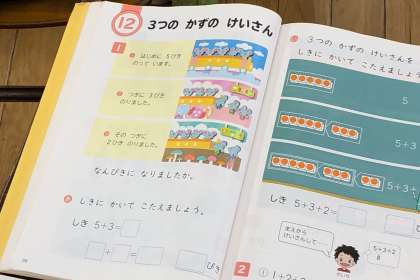 12 3つの かずの けいさん
1
1 はじめに 5ひき
のって います。
2 つぎに 3びき
のりました。
3 その つぎに
2ひき のりました。
なんびきに なりましたか。
しきに かいて こたえましょう。
しき 5+3=
+ =
ぴき
3つの かずの けいさんを
しきに かいて こたえましょ
5
5
5
しき 5+3+2=
まえから
けいさんして
5+3+
8
2
① 1+2+